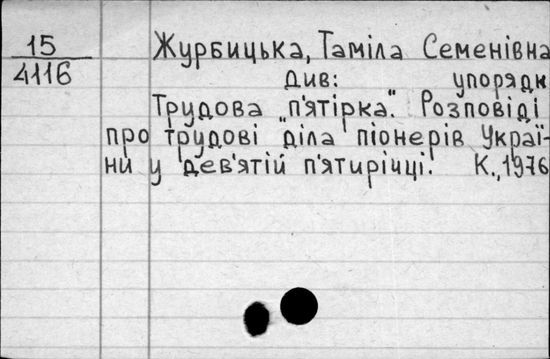 15
4116
Журбицька, Таміла Семенівна
див: упорядн
Трудова "п'ятірка". Розповіді
про трудові діла піонерів Украї-
ни у дев'ятій п'ятирічці. К., 1976